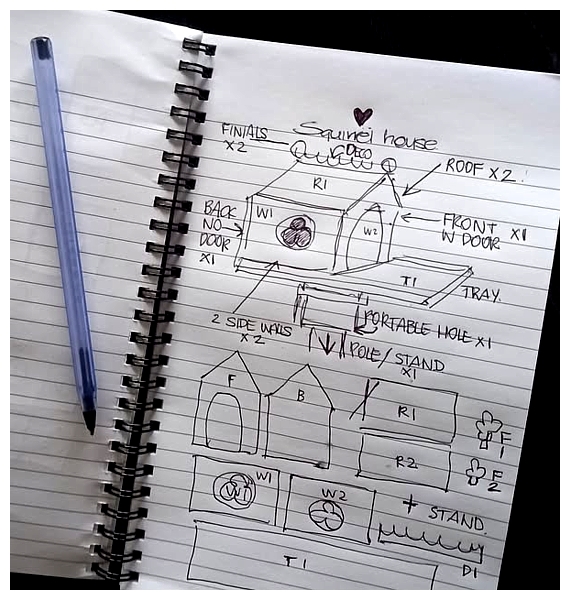 Squirrel house
FINIALS
X2
DECO
ROOF X2.
R1
BACK
NO
DOOR
X1
W1
W2
FRONT X1
W DOOR
T1
TRAY.
2 SIDE WALLS
X2
PORTABLE HOLE X1
POLE/STAND
X1
F
B
R1
F
1
R2
F
2
W1
W1
W2
+ STAND.
D1
T1